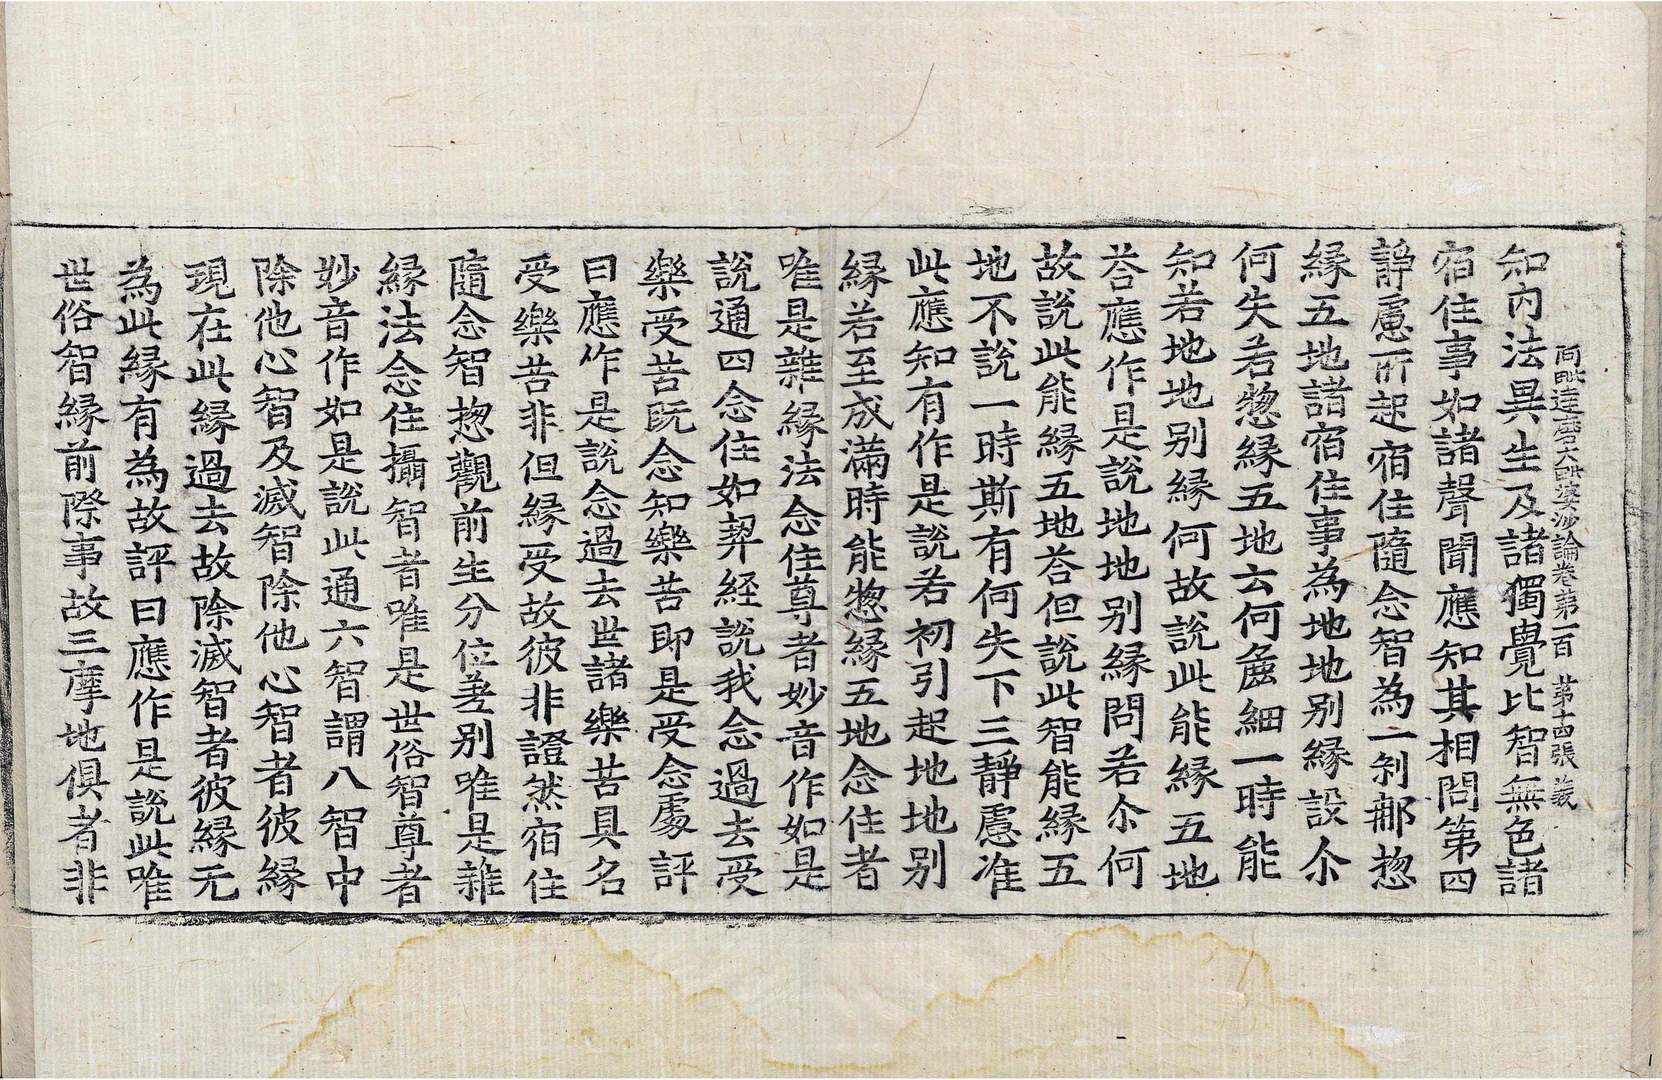 阿毗達磨大毗婆沙論卷第一百 第十四張 義
知內法異生及諸獨覺比智無色諸
宿住事如諸聲聞應知其相問第四
靜慮所起宿住隨念智為一刹那惣
緣五地諸宿住事為地地別緣設尒
何失若惣緣五地云何麁細一時能
知若地地別緣何故說此能緣五地
荅應作是說地地別緣問若尒何
故說此能緣五地荅但說此智能緣五
地不說一時斯有何失下三靜慮准
此應知有作是說若初引起地地別
緣若至成滿時能惣緣五地念住者
唯是雜緣法念住尊者妙音作如是
說通四念住如契經說我念過去受
樂受苦旣念知樂苦即是受念處評
曰應作是說念過去世諸樂苦具名
受樂苦非但緣受故彼非證然宿住
隨念智惣觀前生分位差別唯是雜
緣法念住攝智者唯是世俗智尊者
妙音作如是說此通六智謂八智中
除他心智及滅智除他心智者彼緣
現在此緣過去故除滅智者彼緣无
為此緣有為故評曰應作是說此唯
世俗智緣前際事故三摩地俱者非